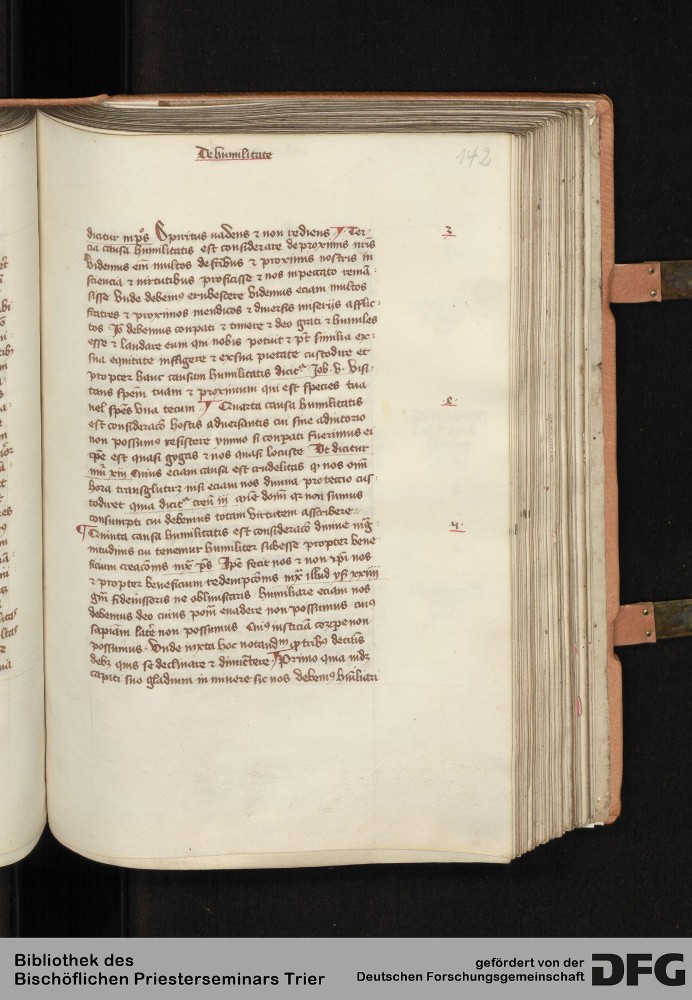 De humilitate
142
dicitur in ps Spiritus vadens et non rediens Ter
cia causa humilitatis est considerare de proximis nris
Videmus eni multos de fribus et proximis nostris in
sciencia et virtutibus proficisse et nos in peccato reman
sisse Unde debemus erubescere Videmus eciam multos
fratres et proximos mendicos et diversis miseriis afflic
tos Io debemus conpati et timere et deo grati et humiles
esse et laudare eum qui nobis potuit et pt similia ex
sua equitate infligere et ex sua pietate custodire et
propter hanc causam humilitatis dicitur Job v Visi
tans speciem tuam et proximum qui est species tua
vel spes una tecum Quarta causa humilitatis
est consideracio hostis adversantis cui sine adiutorio
non possumus resistere ymmo si conpati fuerimus ei
ipse est quasi gygas et nos quasi locuste Ut dicitur
nui xiii Cuius eciam causa est crudelitas qui nos omi
hora transglutiret nisi eciam nos divina protectio cus
todiret quia dicitur tren iii misericordie domini quia non sumus
consumpti cui debemus totam virtutem asscribere
Quinta causa humilitatis est consideracio divine mag
nitudinis cui tenemur humiliter subesse propter bene
ficium creacionis iuxta ps Ipse fecit nos et non ipsi nos
et propter beneficium redempcionis iuxta illud
gram fideiussoris ne obliviscaris humiliare eciam nos
debemus deo cuius potenciam evadere non possumus cuius
sapienciam latere non possumus Cuius iusticiam
possumus Unde iuxta hoc notandum quod tribus decuris
debet quis se declinare et dimittere Primo quia
capiti suo gladium in
sic nos debemus humiliari
3
4
5
Bibliothek des
Bischöflichen Priesterseminars Trier
gefördert von der
Deutschen Forschungsgemeinschaft
DFG